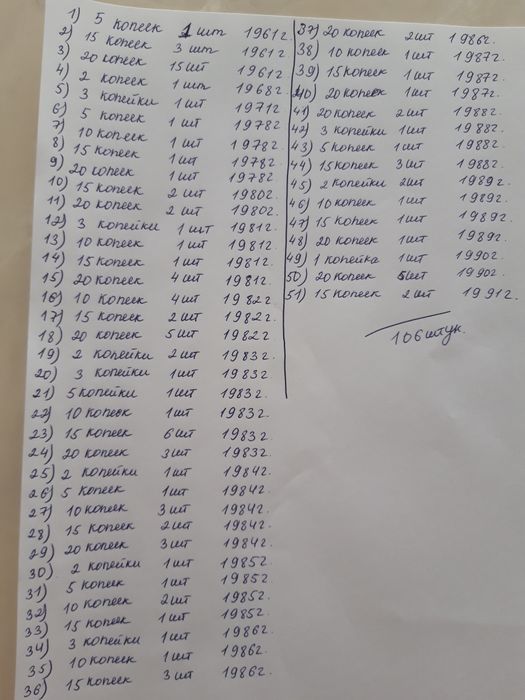 1) 5 копеек 1 шт 1961г.
2) 15 копеек 3 шт 1961г
3) 20 копеек 15 шт 1961г
4) 2 копеек 1 шт 1968г.
5) 3 копейки 1 шт 1971г
6) 5 копеек 1 шт 1978г
7) 10 копеек 1 шт 1978г.
8) 15 копеек 1 шт 1978г.
9) 20 копеек 1 шт 1978г
10) 15 копеек 2 шт 1980г.
11) 20 копеек 2 шт 1980г.
12) 3 копейки 1 шт 1981г.
13) 10 копеек 1 шт 1981г.
14) 15 копеек 1 шт 1981г.
15) 20 копеек 4 шт 1981г.
16) 10 копеек 4 шт 1982г
17) 15 копеек 2 шт 1982г.
18) 20 копеек 5 шт 1982г
19) 2 копейки 2 шт 1983г.
20) 3 копейки 1 шт 1983г.
21) 5 копейки 1 шт 1983г.
22) 10 копеек 1 шт 1983г.
23) 15 копеек 6 шт 1983г
24) 20 копеек 3 шт 1983г.
25) 2 копейки 1 шт 1984г.
26) 5 копеек 1 шт 1984г.
27) 10 копеек 3 шт 1984г.
28) 15 копеек 2 шт 1984г.
29) 20 копеек 3 шт 1984г.
30) 2 копейки 1 шт 1985г
31) 5 копеек 1 шт 1985г
32) 10 копеек 2 шт 1985г.
33) 15 копеек 1 шт 1985г
34) 3 копейки 1 шт 1986г.
35) 10 копеек 1 шт 1986г.
36) 15 копеек 3 шт 1986г.
37) 20 копеек 2 шт 1986г.
38) 10 копеек 1 шт 1987г.
39) 15 копеек 1 шт 1987г.
40) 20 копеек 1 шт 1987г.
41) 20 копеек 2 шт 1988г.
42) 3 копейки 1 шт 1988г.
43) 5 копеек 1 шт 1988г.
44) 15 копеек 3 шт 1988г.
45) 2 копейки 2 шт 1989г.
46) 10 копеек 1 шт 1989г.
47) 15 копеек 1 шт 1989г.
48) 20 копеек 1 шт 1989г.
49) 1 копейка 1 шт 1990г.
50) 20 копеек 5 шт 1990г.
51) 15 копеек 2 шт 1991г.
106 штук.